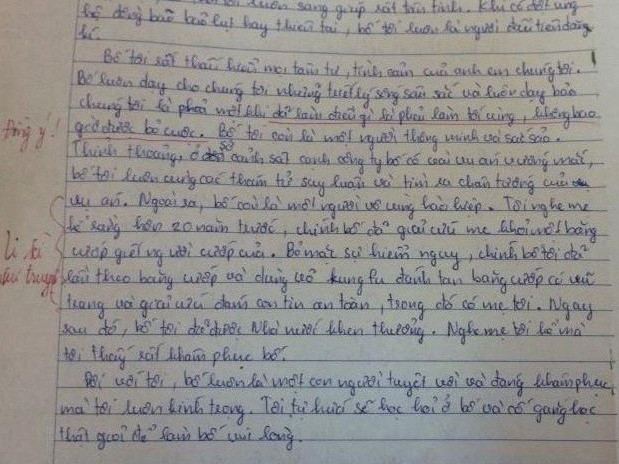 luôn sang giúp rất tận tình. Khi có đợt ủng
hộ đồng bào bão lụt hay thiên tai, bố tôi luôn là người đầu tiên đăng
kí.
Bố tôi rất thấu hiểu mọi tâm tư, tình cảm của anh em chúng tôi.
Bố luôn dạy cho chúng tôi những triết lý sống sâu sắc và luôn dạy bảo
chúng tôi là phải một khi đã làm điều gì là phải làm tới cùng, không bao
giờ được bỏ cuộc. Bố tôi còn là một người thông minh và sắc sảo.
Đồng ý!
Thỉnh thoảng, ở sở cảnh sát cạnh công ty bố có vài vụ án vướng mắc,
bố tôi luôn cùng các thám tử suy luận và tìm ra chân tướng của
vụ án. Ngoài ra, bố còn là một người vô cùng hào hiệp. Tôi nghe mẹ
kể rằng hơn 20 năm trước, chính bố đã giải cứu mẹ khỏi một băng
cướp giết người cướp của. Bỏ mặc sự hiểm nguy, chính bố tôi đã
Li kì
như truyện
lần theo băng cướp và dùng võ kungfu đánh tan băng cướp có vũ
trang và giải cứu đám con tin an toàn, trong đó có mẹ tôi. Ngay
sau đó, bố tôi đã được Nhà nước khen thưởng. Nghe mẹ tôi kể mà
tôi thấy rất khâm phục bố.
Đối với tôi, bố luôn là một con người tuyệt vời và đáng khâm phục
mà tôi luôn kính trọng. Tôi tự hứa sẽ học hỏi ở bố và cố gắng học
thật giỏi để làm bố vui lòng.